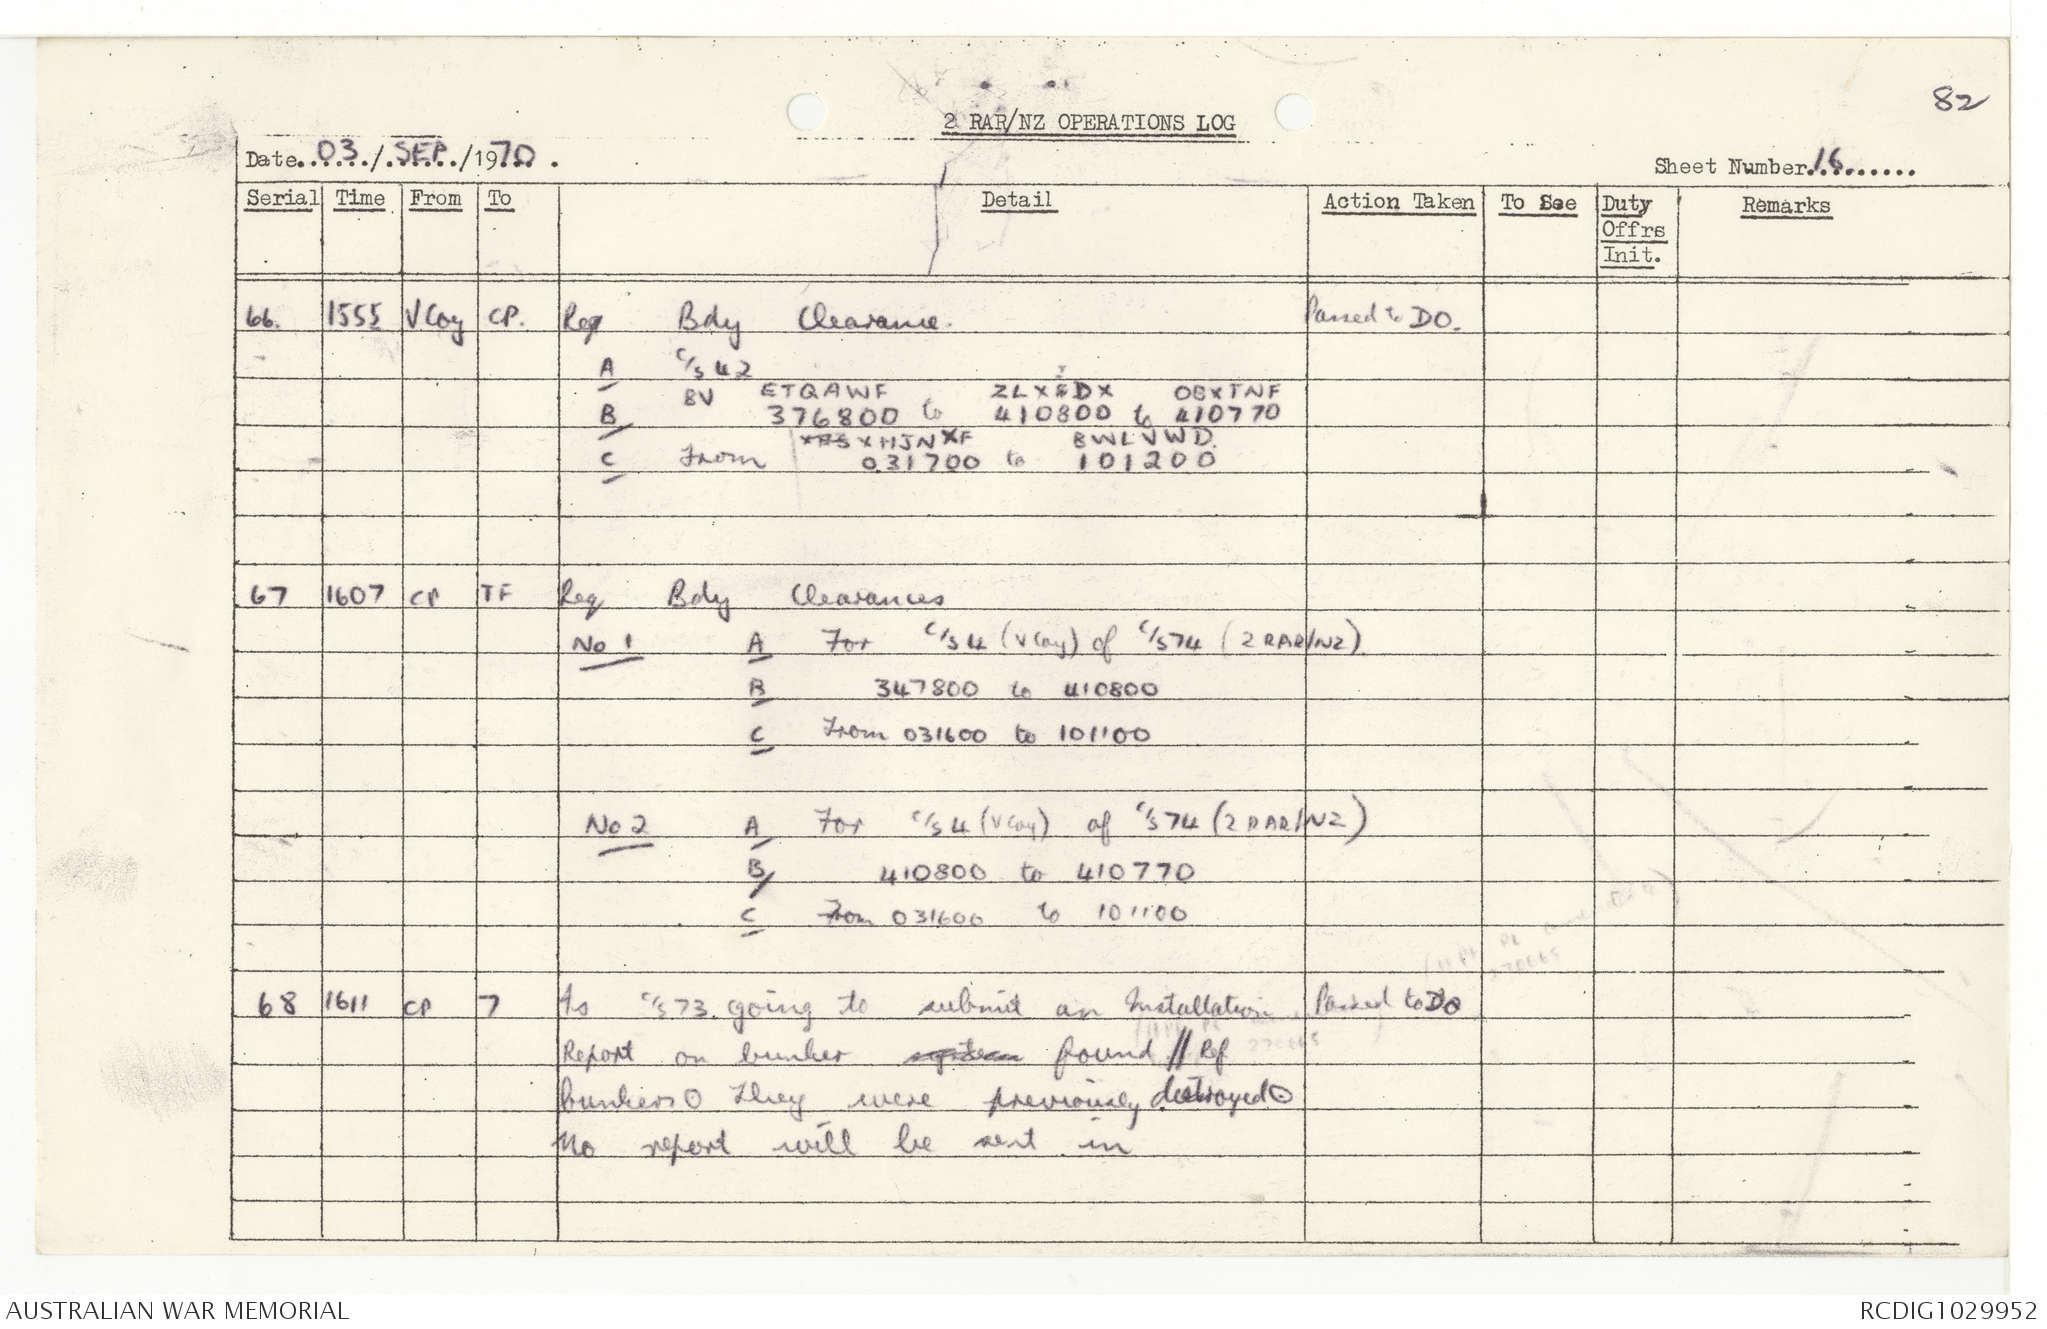 82
2 RAR/NZ OPERATIONS LOG
Date 03/SEP/1970. Sheet Number 16
Serial Time From To Detail Action Taken To See Duty Offrs Init. Remarks
66. 1555 V Coy CP. Req Bdy Clearance. Passed to DO.
A C/S 42
BV ETQAWF OBXTNF
B 376800 to 410800 to 410770
BWLVWD
C From 031700 to 101200
67 1607 CP TF Req Bdy Clearances
No 1 A For C/S 4 (V Coy) of C/S 74 (2 RAR/NZ)
B 347800 to 410800
C From 031600 to 101100
No 2 A For C/S 4 (V Coy) of C/S 74 (2 RAR/NZ)
B 410800 to 410770
C From 031600 to 101100
68 1611 CP 7 Is C/S 73 going to submit an Installation Passed to DO
Report on bunker system found // Ref
bunkers ⊙ They were previously destroyed ⊙
No report will be sent in
AUSTRALIAN WAR MEMORIAL RCDIG1029952